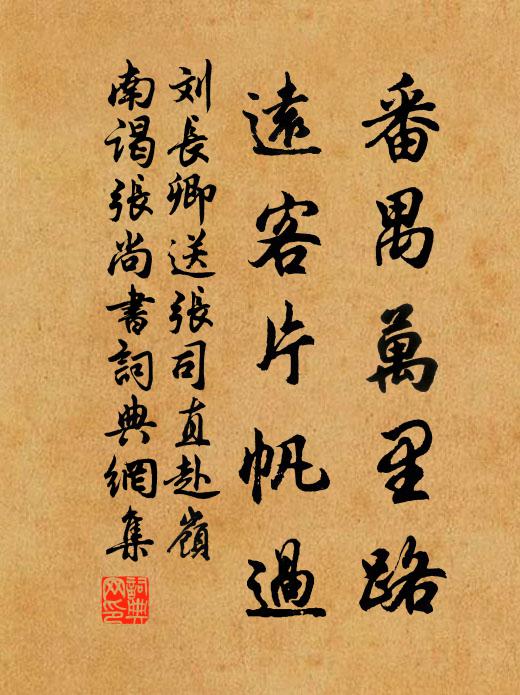 番禺萬里路
遠客片帆過
刘長卿送張司直赴嶺
南谒張尚書詞典網集